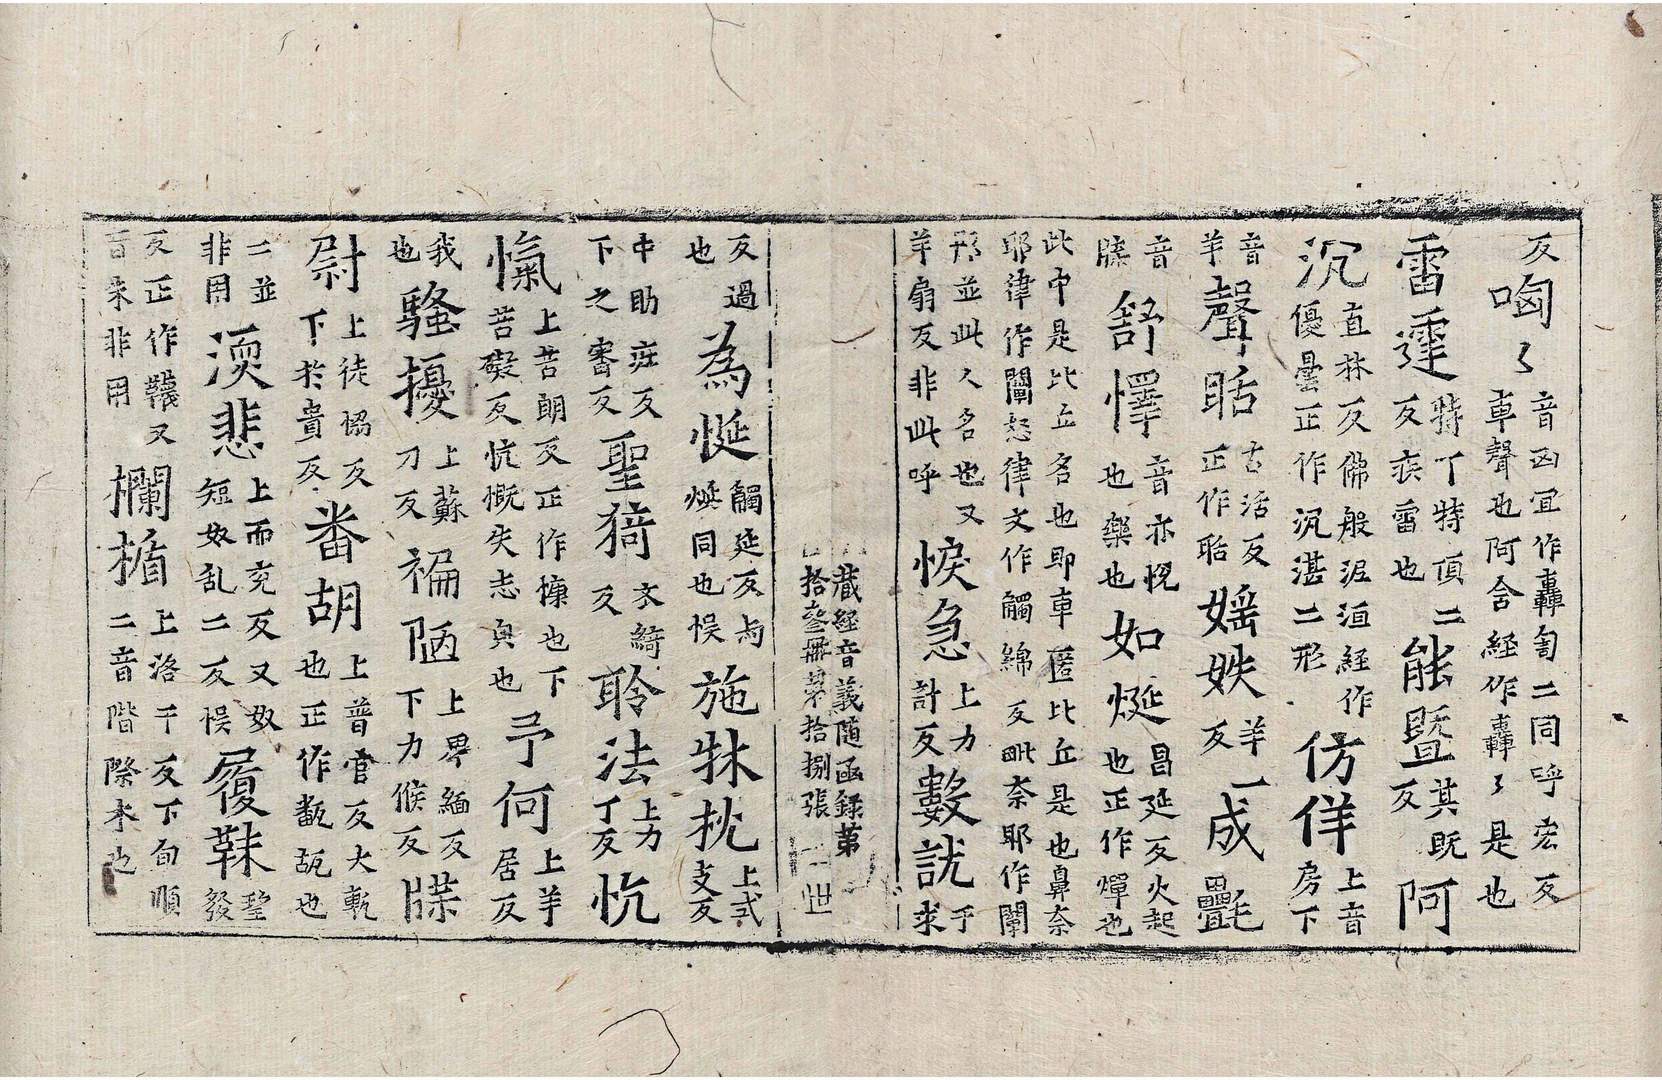 反呴〻音匈冝作轟訇二同呼宏反車聲也阿含経作轟〻是也
雷霆特丁特頂二反疾雷也能曁其既反阿
沉直林反佛般泥洹経作優曇正作沉湛二形仿佯上音房下
音羊聲聒古活反正作聒媱妷羊一反成㲲
音牒舒懌音亦恱也樂也如烻昌延反火起也正作燀也
此中是比丘名也即車匿比丘是也鼻奈耶律作闡怒律文作觸綿反毗奈耶作闡
那並此人名也又羊扇反非此呼悷急上力計反數訧乎求
藏経音義隨函録第
拾叄冊苐拾捌張 世
反過也為烻觸延反与同也悮施牀枕上式支反
中助疰反下之審反聖猗衣綺反聆法上力丁反忼
愾上苦朗反正作慷也下苦礙反忼慨失志皃也予何上羊居反
我也騷擾上蘇刀反褊陋上畀緬反下力候反牒
尉上徒恊反下扵貴反畨胡上普官反大瓠也正作瓳也
二並非用渜悲上而兖反又奴短奴乱二反悮履靺望發
反正作韤又音末非用欄楯上洛干反下旬順二音階際木也